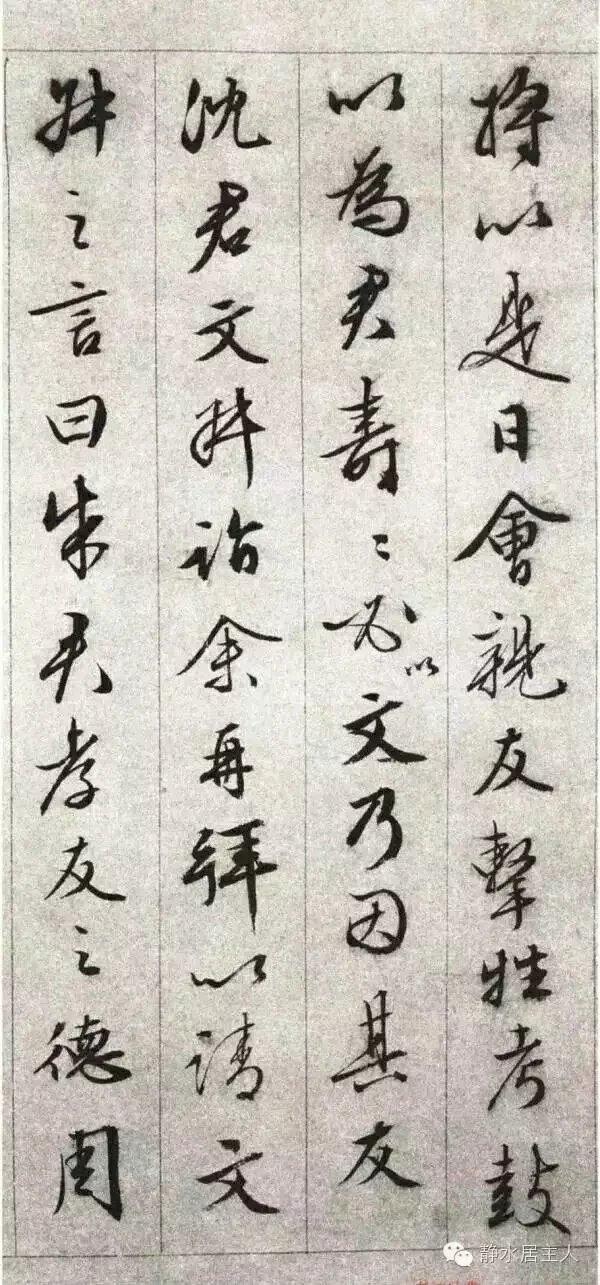 將以是日會親友擊牲考鼓
以為君壽〻必以文乃因其友
沈君文昇詣余再拜以請文
昇之言曰朱君孝友之德周
静水居主人